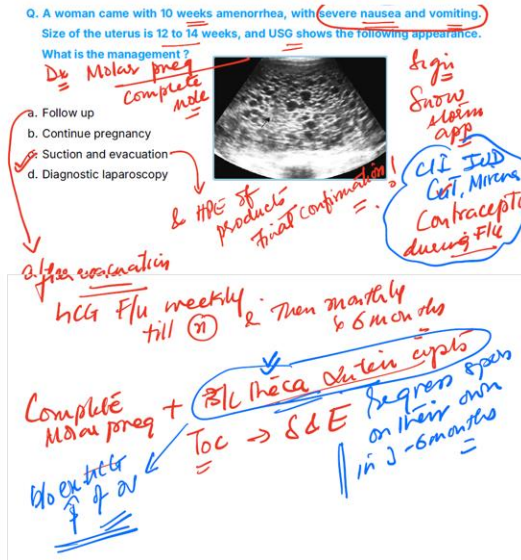 Q. A woman came with 10 weeks amenorrhea, with severe nausea and vomiting.
Size of the uterus is 12 to 14 weeks, and USG shows the following appearance.
What is the management ?
Dx Molar preg
complete
mole
Sign
Snow
storm
app
a. Follow up
b. Continue pregnancy
c. Suction and evacuation
d. Diagnostic laparoscopy
& HPE of
products
Final confirmation !
C/I IUD
CuT, Mirena
Contracept
during F/u
after evacuation
hCG F/u weekly
till n & then monthly
6 months
Complete
Molar preg + B/L Theca Lutein cysts
TOC → S & E
Regress
on their own
in 3-6 months
b/o hCG
↑ of